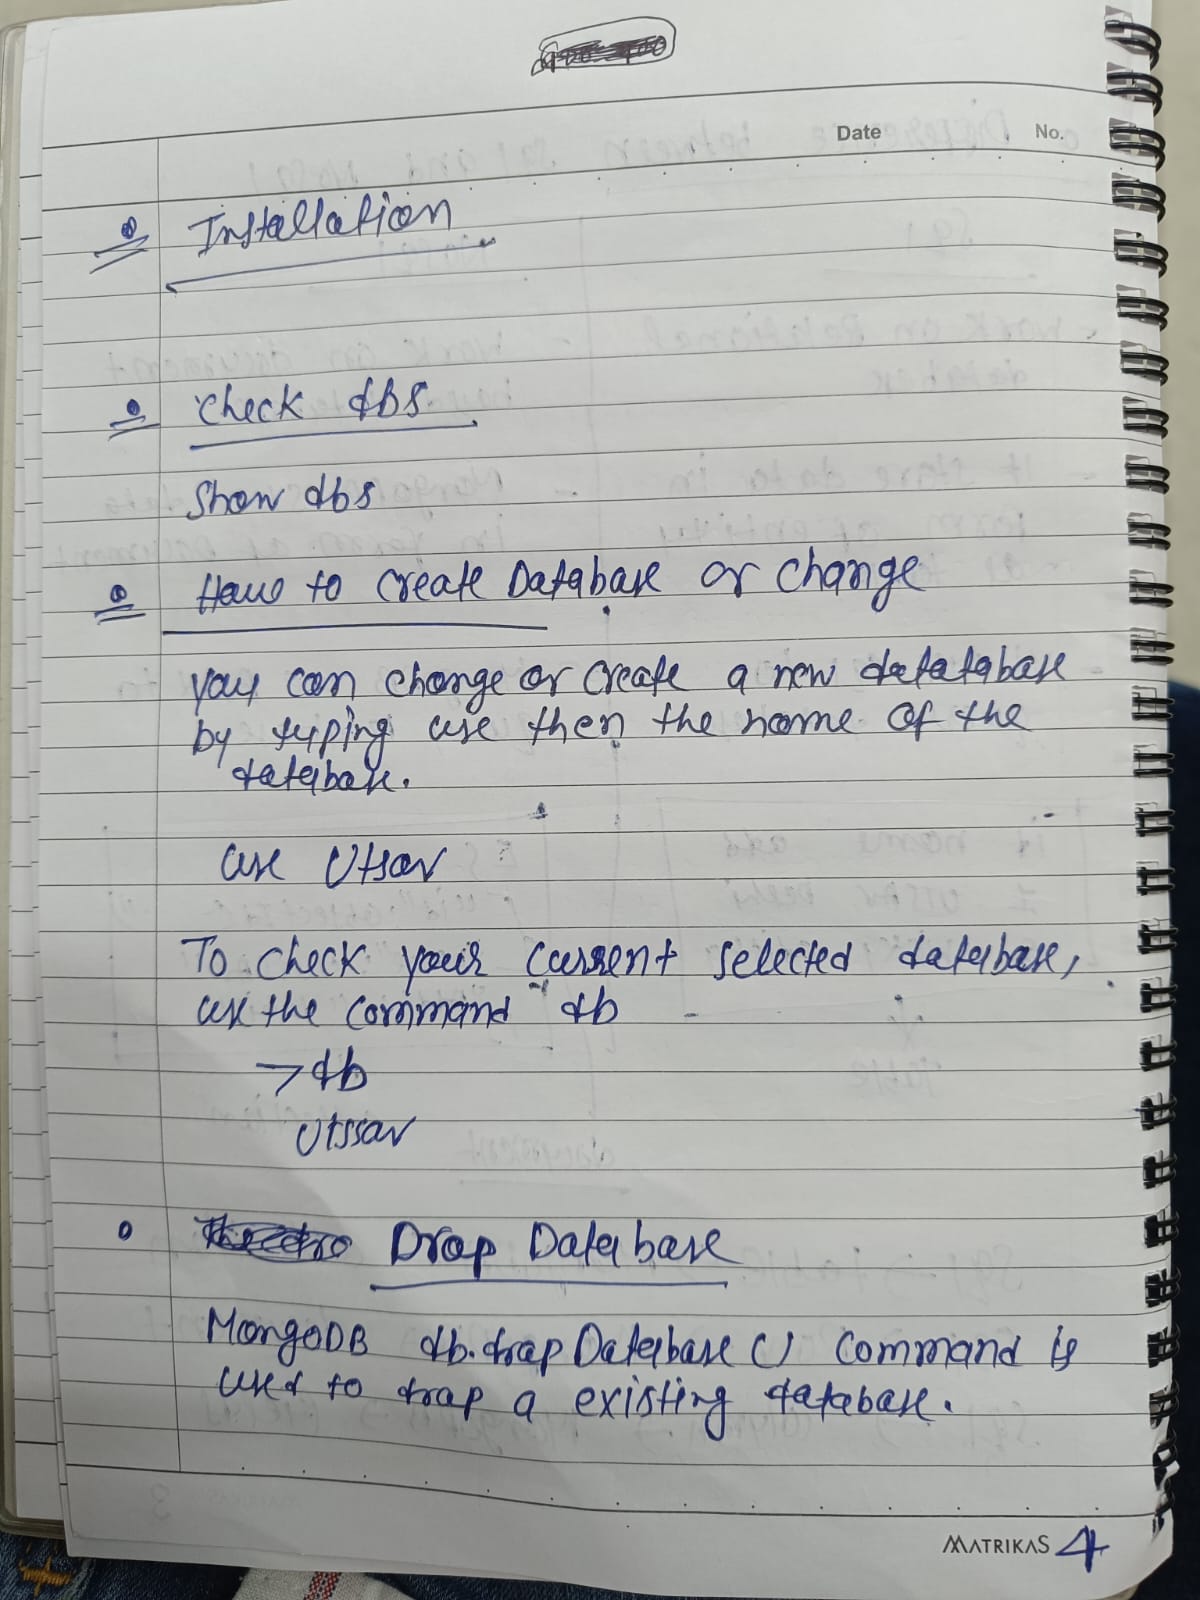 Date No.
Installation
Check dbs
Show dbs
How to Create Database or Change
you can change or create a new datatabase
by typing use then the name of the
database.
use Utsav
To check your current selected database,
use the command db
>db
Utssav
Drop Database
MongoDB db.dropDatabase () command is
used to drop a existing database.
MATRIKAS 4